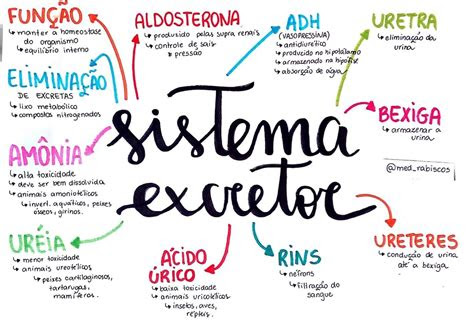 FUNÇÃO
• manter a homeostase
do organismo
• equilíbrio interno
ALDOSTERONA
• produzido pelas supra renais
• controle de sais
pressão
ADH
(VASOPRESSINA)
• antidiurético
• produzido no hipotálamo
• armazenado na hipófise
• absorção de água
URETRA
• eliminação da
urina
ELIMINAÇÃO
DE EXCRETAS
• lixo metabólico
• compostos nitrogenados
BEXIGA
• armazenar a
urina
@med_rabiscos
AMÔNIA
• alta toxicidade
• deve ser bem dissolvida
• animais amoniotélicos
• invert. aquáticos, peixes
ósseos, girinos.
sistema
excretor
URÉIA
• menor toxicidade
• animais ureotélicos
• peixes cartilaginosos,
tartarugas,
mamíferos.
ÁCIDO
ÚRICO
• baixa toxicidade
• animais uricotélicos
• insetos, aves,
répteis.
RINS
• néfrons
• filtração do
sangue
URETERES
• condução de urina
até a bexiga